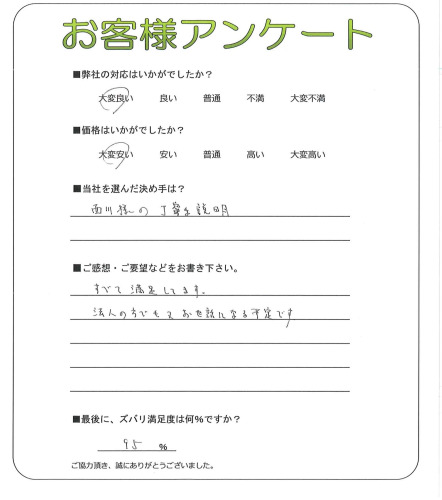 お客様アンケート
■弊社の対応はいかがでしたか？
大変良い 良い 普通 不満 大変不満
■価格はいかがでしたか？
大変安い 安い 普通 高い 大変高い
■当社を選んだ決め手は？
西川様の丁寧な説明
■ご感想・ご要望などをお書き下さい。
すべて満足してます。
法人の方でもお世話になる予定です
■最後に、ズバリ満足度は何％ですか？
95 ％
ご協力頂き、誠にありがとうございました。